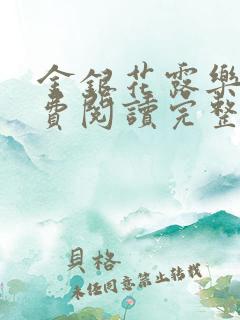 金銀花露樂
費閱讀完整
貝格
未经同意禁止转载